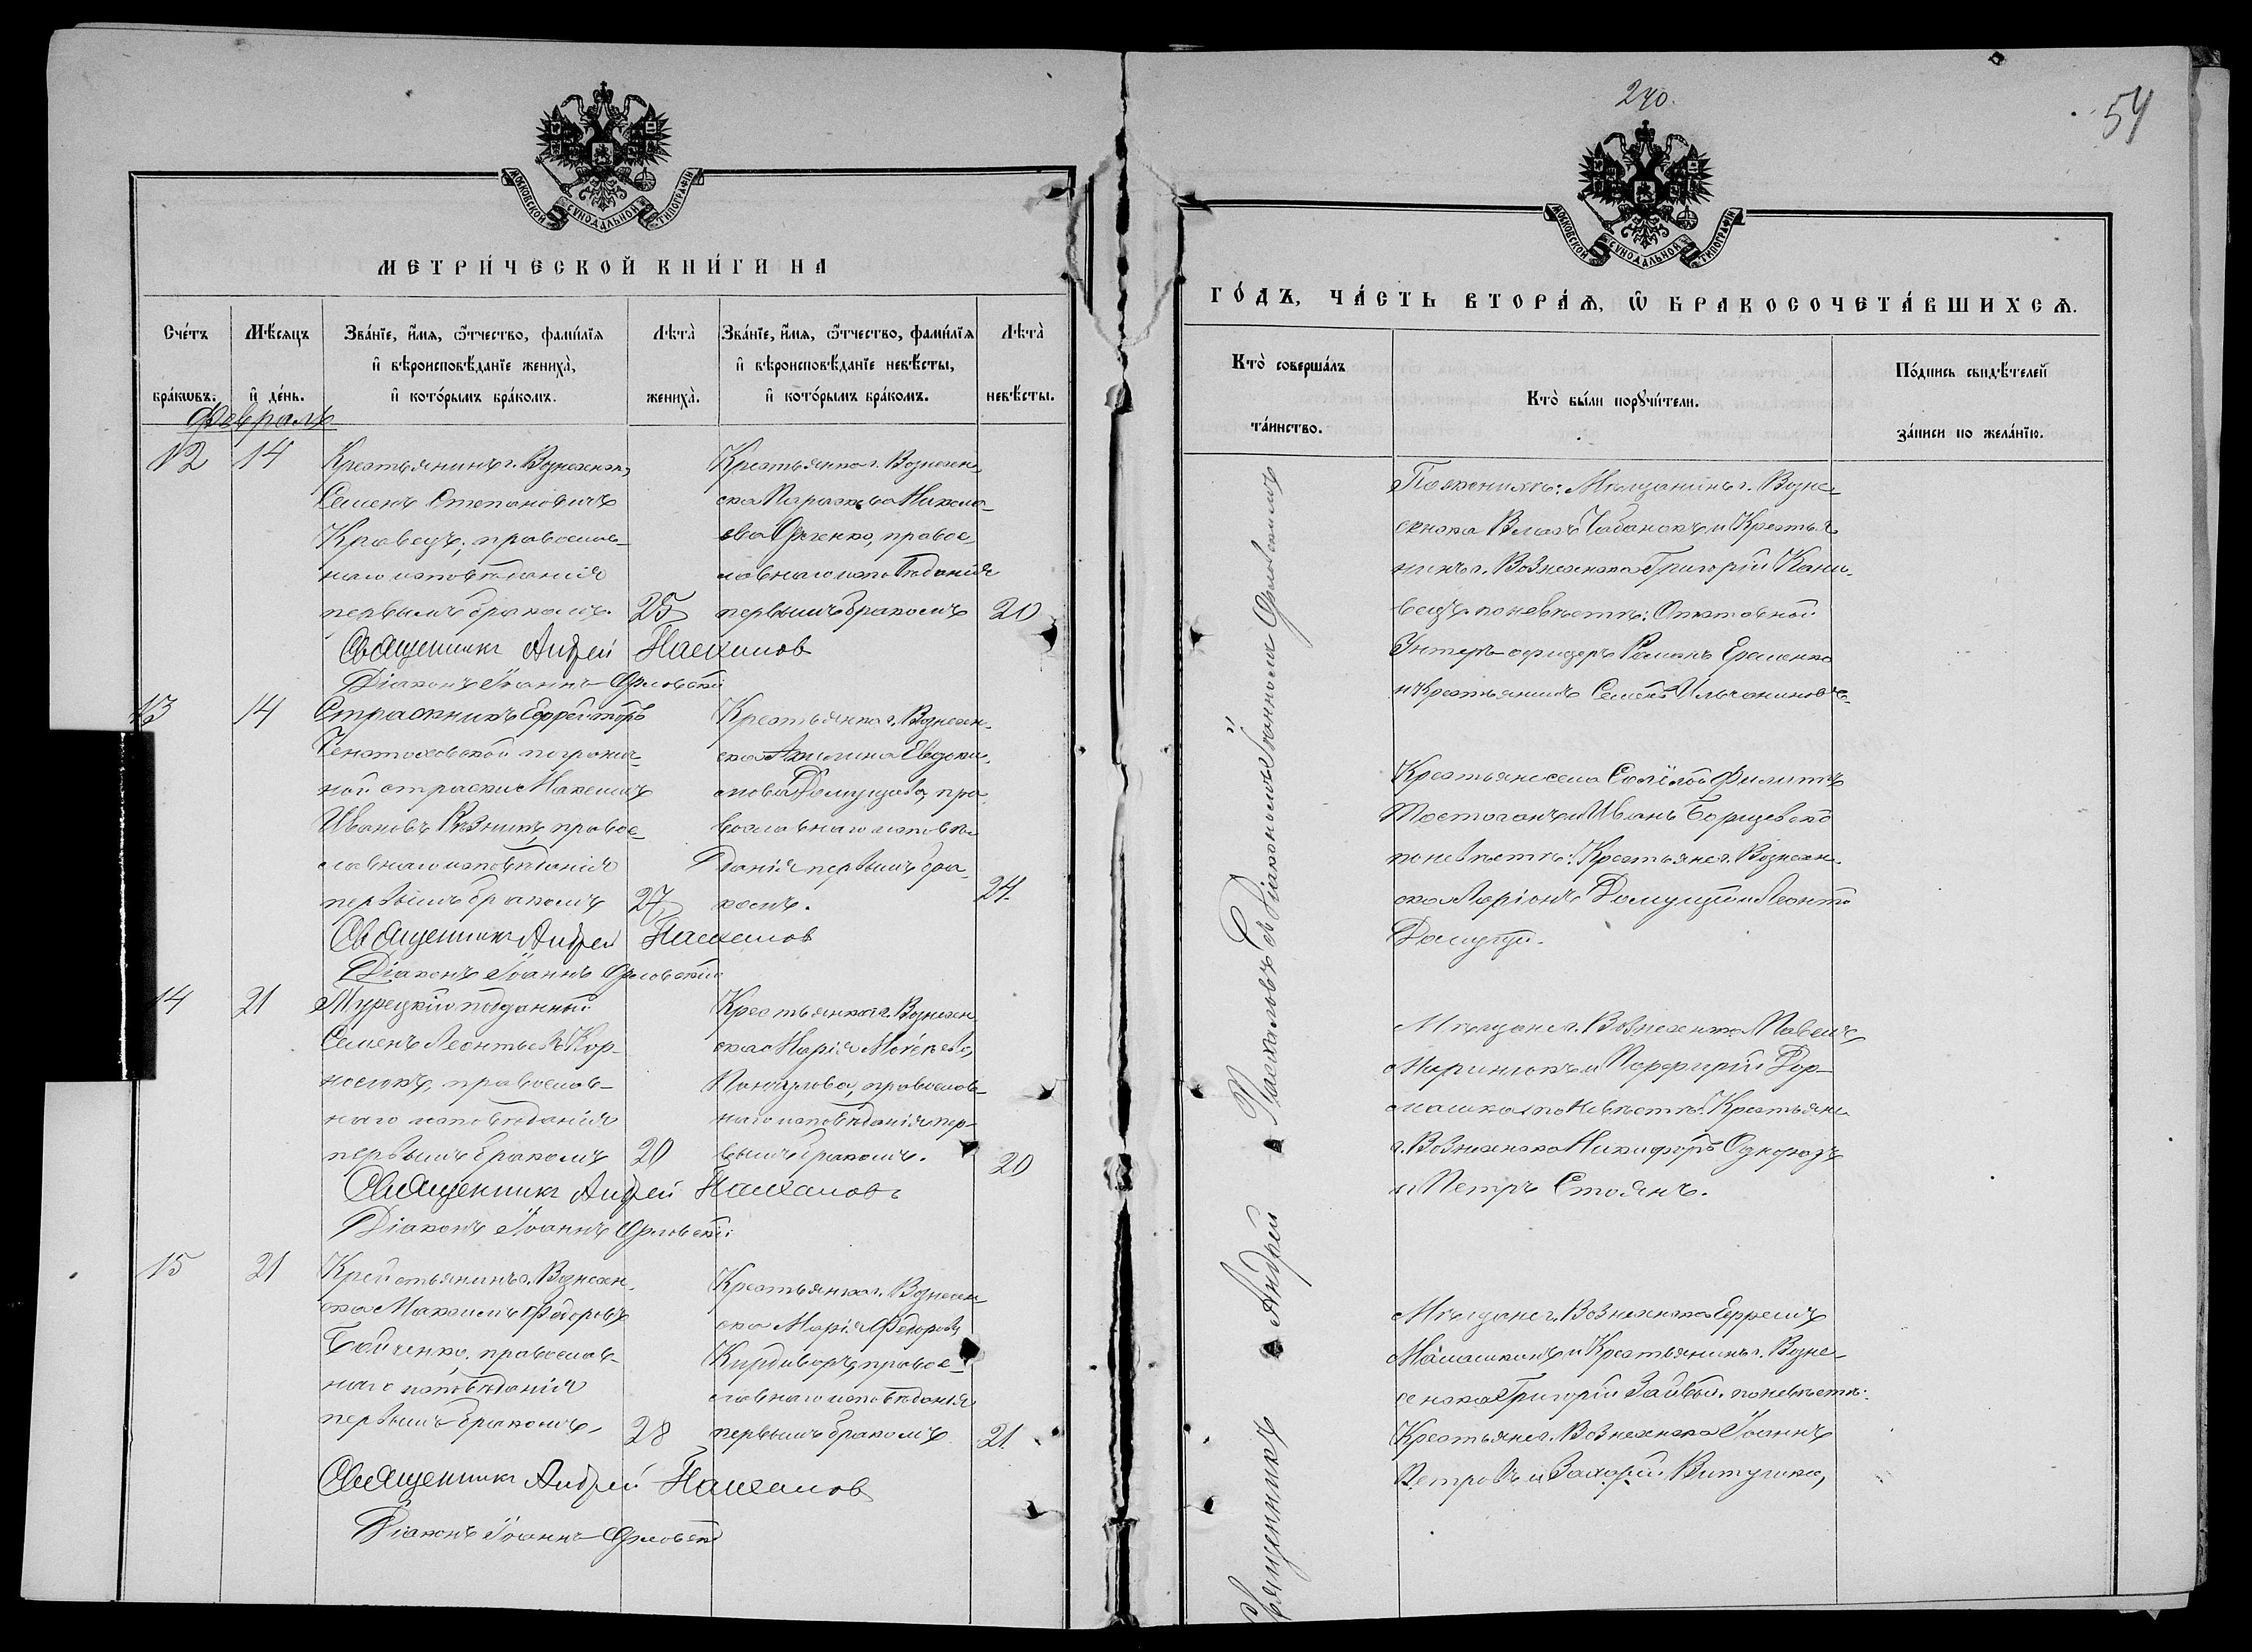 МОСКОВСКОЙ СѴНОДАЛЬНОЙ ТИПОГРАФІИ
МЕТРИ́ЧЕСКОЙ КНИ́ГИ НА
Сче́тъ бра́кωвъ.
Мѣ́сяцъ и҆ де́нь.
Зва́нїе, и҆́мѧ, ѻ҆́тчество, фами́лїѧ
и҆ вѣроисповѣ́данїе жениха̀,
и҆ кото́рымъ бра́комъ.
Лѣта̀ жениха̀.
Зва́нїе, и҆́мѧ, ѻ҆́тчество, фами́лїѧ
и҆ вѣроисповѣ́данїе невѣ́сты,
и҆ кото́рымъ бра́комъ.
Лѣта̀ невѣ́сты.
Февраль
12
14
Крестьянинъ г. Вознесенска
Семенъ Степановичъ
Кравецъ, православ-
наго исповѣданія
первымъ бракомъ.
25
Крестьянка г. Вознесен-
ска Параскева Никола-
ева, правос-
лавнаго исповѣданія
первымъ бракомъ
20
Священникъ Андрей Пасхалов
Діаконъ Іоаннъ Орловскій
13
14
Стражникъ Ефрейторъ
Ченстоховской погранич-
ной стражи Максимъ
Ивановъ Рѣзникъ, правос-
лавнаго исповѣданія
первымъ бракомъ
27
Крестьянка г. Вознесен-
ска Акилина Евдоки-
мова Домущова, пра-
вославнаго исповѣ-
данія первымъ бра-
комъ.
24
Священникъ Андрей Пасхалов
Діаконъ Іоаннъ Орловскій
14
21
Турецкій подданный
Семенъ Леонтьевъ Кор-
носюкъ, православ-
наго исповѣданія
первымъ бракомъ
20
Крестьянка г. Вознесен-
ска Марія Моисеева
православ-
наго исповѣданія пер-
вымъ бракомъ.
20
Священникъ Андрей Пасхалов
Діаконъ Іоаннъ Орловскій
15
21
Крестьянинъ г. Вознесен-
ска Максимъ Ѳедоровъ
Бойченко, православ-
наго исповѣданія
первымъ бракомъ,
28
Крестьянка г. Вознесен-
ска Марія Ѳедорова
Кирдиворъ, правос-
лавнаго исповѣданія
первымъ бракомъ
21.
Священникъ Андрей Пасхалов
Діаконъ Іоаннъ Орловскій
240.
54
МОСКОВСКОЙ СѴНОДАЛЬНОЙ ТИПОГРАФІИ
ГО́ДЪ, ЧА́СТЬ ВТОРА́Ѧ, Ѡ҆ БРАКОСОЧЕТА́ВШИХСѦ.
Кто̀ соверша́лъ та́инство.
Кто̀ бы́ли порꙋчи́тели.
По́дпись свидѣ́телей за́писи по жела́нїю.
Священникъ Андрей Пасхаловъ съ Діакономъ Іоанномъ Орловскимъ
По женихѣ: Мѣщанинъ г. Возне-
сенска Власъ Чабанокъ и Крестья-
нинъ г. Вознесенска Григорій Кани-
вецъ. по невѣстѣ: Отставной
Унтеръ-офицеръ Романъ Еременко
и крестьянинъ Семенъ
Крестьяне села Филиппъ
и Иванъ Борщевскій
по невѣстѣ: Крестьяне г. Вознесен-
ска Ларіонъ Домущій и Леонтій
Домущи.
Мѣщане г. Вознесенска Павелъ
Маринюкъ и Порфирій Дор-
машка; по невѣстѣ: Крестьяне
г. Вознесенска Никифоръ Однородъ
и Петръ Стоянъ.
Мѣщане г. Вознесенска Ефремъ
и Крестьянинъ г. Возне-
сенска Григорій. по невѣстѣ:
Крестьяне г. Вознесенска Іоаннъ
Петровъ и Захарій